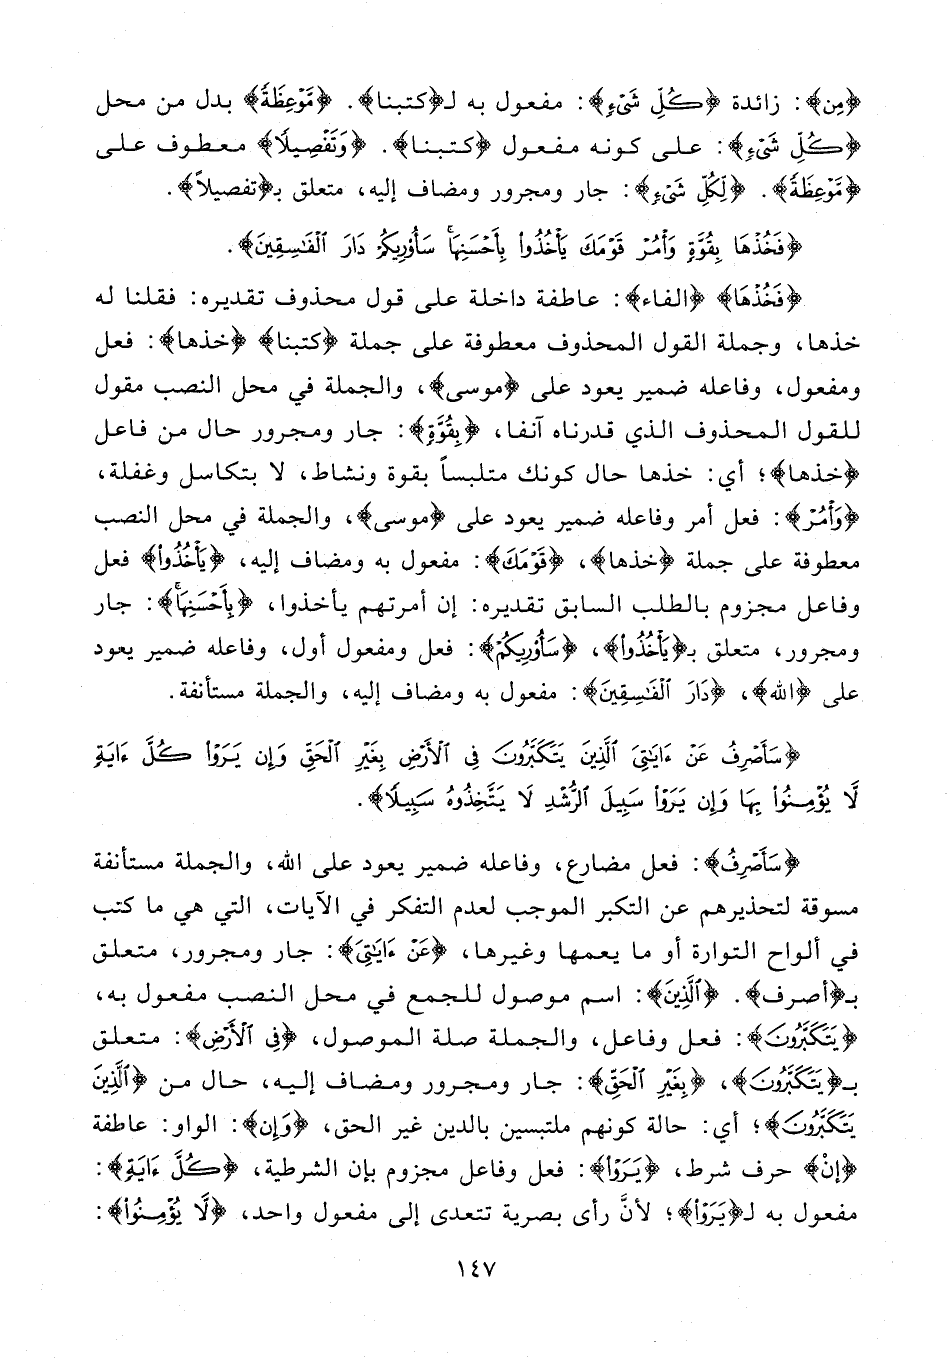 ﴿مِن﴾: زائدة ﴿كُلِّ شَىْءٍ﴾: مفعول به لـ﴿كتبنا﴾. ﴿مَّوْعِظَةً﴾ بدل من محل
﴿كُلِّ شَىْءٍ﴾: على كونه مفعول ﴿كتبنا﴾. ﴿وَتَفْصِيلًا﴾ معطوف على
﴿مَّوْعِظَةً﴾. ﴿لِّكُلِّ شَىْءٍ﴾: جار ومجرور ومضاف إليه، متعلق بـ﴿تفصيلاً﴾.
﴿فَخُذْهَا بِقُوَّةٍ وَأْمُرْ قَوْمَكَ يَأْخُذُوا۟ بِأَحْسَنِهَا ۚ سَأُو۟رِيكُمْ دَارَ ٱلْفَـٰسِقِينَ﴾.
﴿فَخُذْهَا﴾ ﴿الفاء﴾: عاطفة داخلة على قول محذوف تقديره: فقلنا له
خذها، وجملة القول المحذوف معطوفة على جملة ﴿كتبنا﴾ ﴿خذها﴾: فعل
ومفعول، وفاعله ضمير يعود على ﴿موسى﴾، والجملة في محل النصب مقول
للقول المحذوف الذي قدرناه آنفا، ﴿بِقُوَّةٍ﴾: جار ومجرور حال من فاعل
﴿خذها﴾؛ أي: خذها حال كونك متلبساً بقوة ونشاط، لا بتكاسل وغفلة،
﴿وَأْمُرْ﴾: فعل أمر وفاعله ضمير يعود على ﴿موسى﴾، والجملة في محل النصب
معطوفة على جملة ﴿خذها﴾، ﴿قَوْمَكَ﴾: مفعول به ومضاف إليه، ﴿يَأْخُذُوا۟﴾ فعل
وفاعل مجزوم بالطلب السابق تقديره: إن أمرتهم يأخذوا، ﴿بِأَحْسَنِهَا ۚ﴾: جار
ومجرور، متعلق بـ﴿يَأْخُذُوا۟﴾، ﴿سَأُو۟رِيكُمْ﴾: فعل ومفعول أول، وفاعله ضمير يعود
على ﴿الله﴾، ﴿دَارَ ٱلْفَـٰسِقِينَ﴾: مفعول به ومضاف إليه، والجملة مستأنفة.
﴿سَأَصْرِفُ عَنْ ءَايَـٰتِىَ ٱلَّذِينَ يَتَكَبَّرُونَ فِى ٱلْأَرْضِ بِغَيْرِ ٱلْحَقِّ وَإِن يَرَوْا۟ كُلَّ ءَايَةٍ
لَّا يُؤْمِنُوا۟ بِهَا وَإِن يَرَوْا۟ سَبِيلَ ٱلرُّشْدِ لَا يَتَّخِذُوهُ سَبِيلًا﴾.
﴿سَأَصْرِفُ﴾: فعل مضارع، وفاعله ضمير يعود على الله، والجملة مستأنفة
مسوقة لتحذيرهم عن التكبر الموجب لعدم التفكر في الآيات، التي هي ما كتب
في ألواح التوارة أو ما يعمها وغيرها، ﴿عَنْ ءَايَـٰتِىَ﴾: جار ومجرور، متعلق
بـ﴿أصرف﴾. ﴿ٱلَّذِينَ﴾: اسم موصول للجمع في محل النصب مفعول به،
﴿يَتَكَبَّرُونَ﴾: فعل وفاعل، والجملة صلة الموصول، ﴿فِى ٱلْأَرْضِ﴾: متعلق
بـ﴿يَتَكَبَّرُونَ﴾، ﴿بِغَيْرِ ٱلْحَقِّ﴾: جار ومجرور ومضاف إليه، حال من ﴿ٱلَّذِينَ
يَتَكَبَّرُونَ﴾؛ أي: حالة كونهم ملتبسين بالدين غير الحق، ﴿وَإِن﴾: الواو: عاطفة
﴿إِنْ﴾ حرف شرط، ﴿يَرَوْا۟﴾: فعل وفاعل مجزوم بإن الشرطية، ﴿كُلَّ ءَايَةٍ﴾:
مفعول به لـ﴿يَرَوْا۟﴾؛ لأنَّ رأى بصرية تتعدى إلى مفعول واحد، ﴿لَّا يُؤْمِنُوا۟﴾:
١٤٧